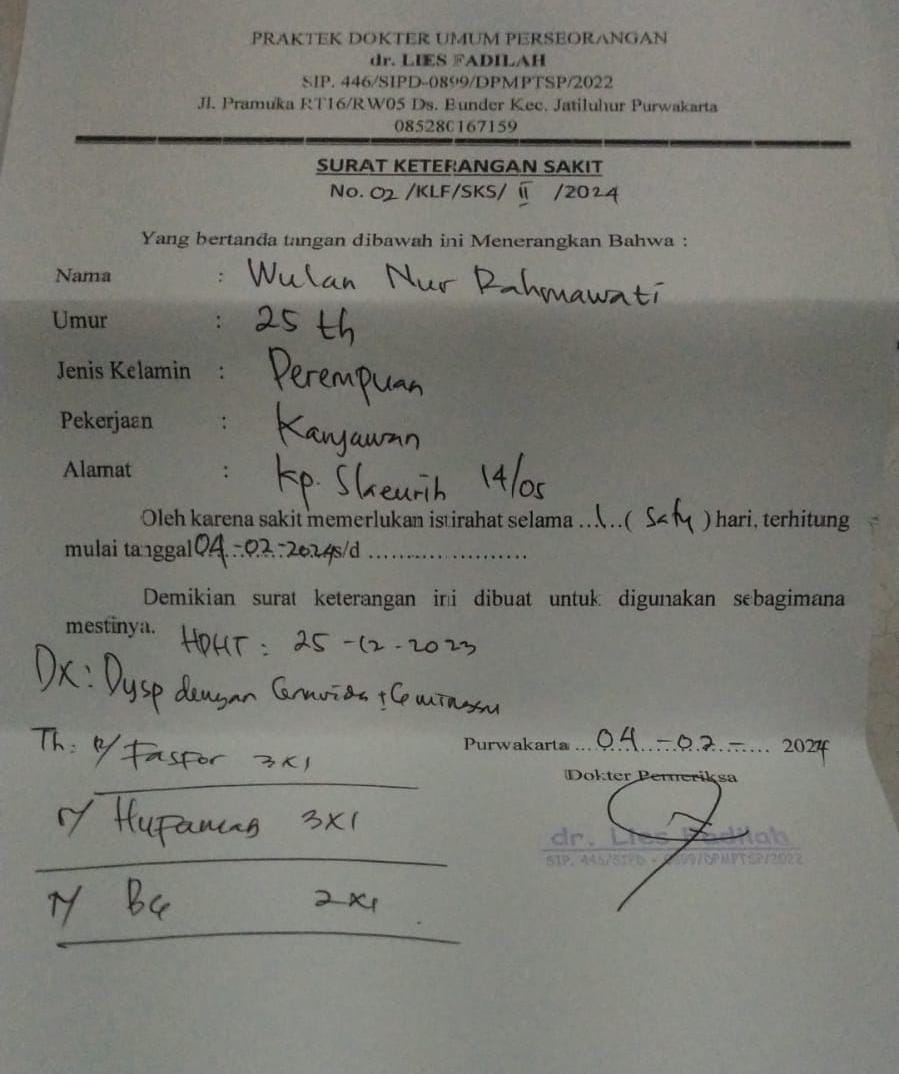 PRAKTEK DOKTER UMUM PERSEORANGAN
dr. LIES FADILAH
SIP. 446/SIPD-0899/DPMPTSP/2022
Jl. Pramuka RT16/RW05 Ds. Bunder Kec. Jatiluhur Purwakarta
085280167159
SURAT KETERANGAN SAKIT
No. 02 /KLF/SKS/ II /2024
Yang bertanda tangan dibawah ini Menerangkan Bahwa :
Nama : Wulan Nur Rahmawati
Umur : 25 th
Jenis Kelamin : Perempuan
Pekerjaan : Karyawan
Alamat : Kp. 14/05
Oleh karena sakit memerlukan istirahat selama ...1...( Satu ) hari, terhitung
mulai tanggal 04-02-2024 s/d ......................
Demikian surat keterangan ini dibuat untuk digunakan sebagimana
mestinya.
HPHT : 25-12-2023
Dx : Dysp dengan Gravida ± 6 minggu
Th : R/ Fasfor 3x1
Purwakarta ... 04 - 02 - .... 2024
Dokter Pemeriksa
R/ 3x1
dr. Lies Fadilah
SIP. 446/SIPD - 0899/DPMPTSP/2022
R/ B6 2x1